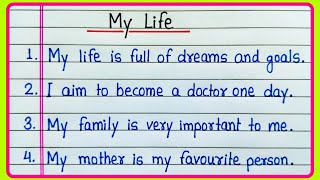 My Life
1. My life is full of dreams and goals.
2. I aim to become a doctor one day.
3. My family is very important to me.
4. My mother is my favourite person.